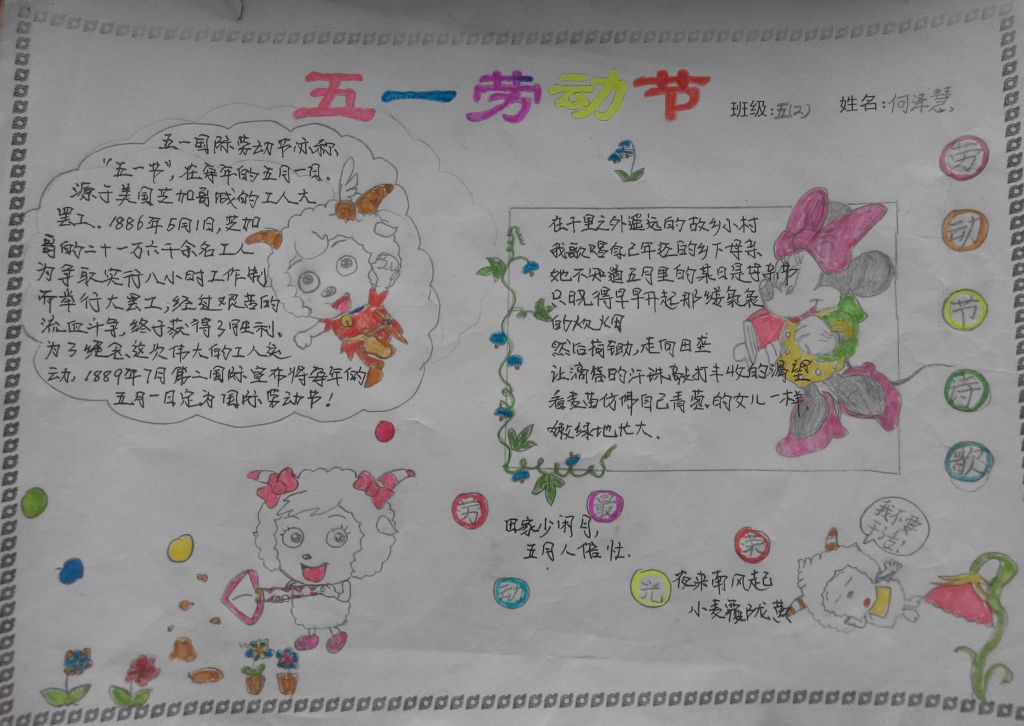 五一劳动节
班级:五(2) 姓名:何泽慧
五一国际劳动节亦称
“五一节”,在每年的五月一日。
源于美国芝加哥城的工人大
罢工。1886年5月1日,芝加
哥的二十一万六千余名工人
为争取实行八小时工作制
而举行大罢工,经过艰苦的
流血斗争,终于获得了胜利。
为了纪念这次伟大的工人运
动,1889年7月第二国际宣布将每年的
五月一日定为国际劳动节!
在千里之外遥远的故乡小村
我歌唱自己年迈的乡下母亲
她不知道五月里的某日是母亲节
只晓得早早开起那缕袅袅
的炊烟
然后荷锄,走向田垄
让滴落的汗珠敲打丰收的渴望
看麦苗仿佛自己青葱的女儿一样,
嫩绿地忙大.
劳
动
节
诗
歌
劳
动
最
光
荣
田家少闲月,
五月人倍忙.
夜来南风起
小麦覆陇黄
我不要
干活!